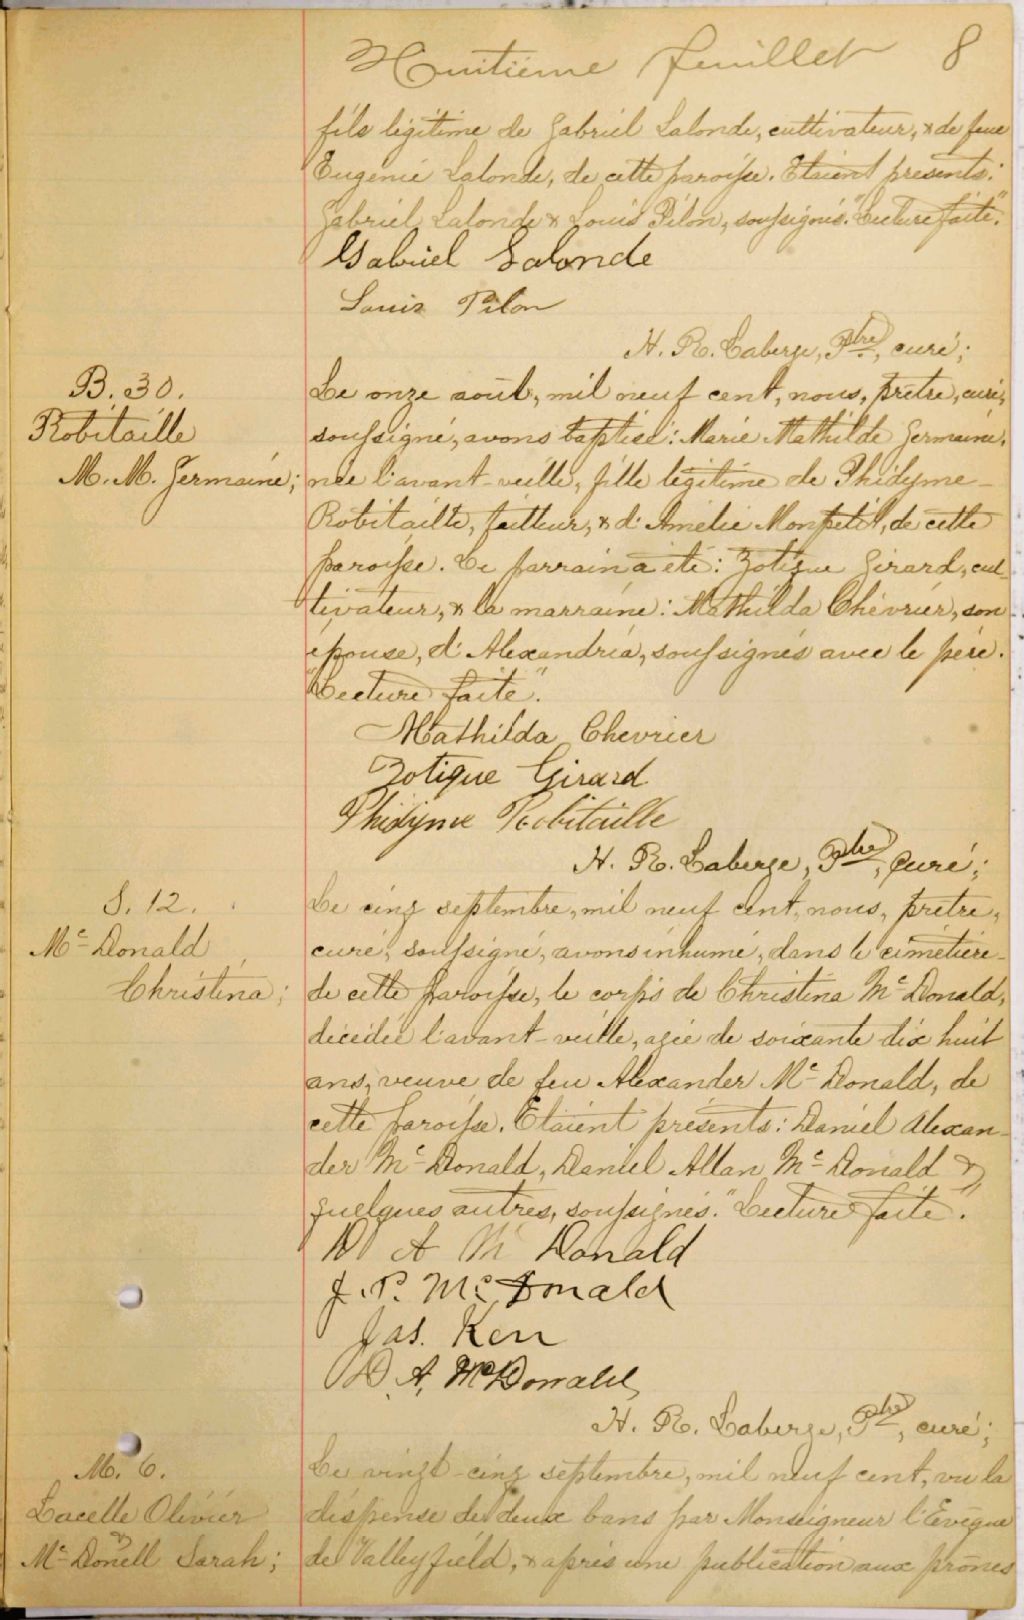 Huitième feuillet 8
fils légitime de Gabriel Lalonde, cultivateur, & de feue
Eugénie Lalonde, de cette paroisse. Etaient présents:
Gabriel Lalonde & Louis Pilon, soussignés. "Lecture faite".
Gabriel Lalonde
Louis Pilon
H. R. Laberge, Ptre, curé;
B. 30.
Robitaille
M. M. Germaine;
Le onze août, mil neuf cent, nous, prêtre, curé,
soussigné, avons baptisé: Marie Mathilde Germaine,
née l'avant-veille, fille légitime de Phidyme
Robitaille, laitier, & d'Amélie Monpetit, de cette
paroisse. Le parrain a été: Zotique Girard, cul-
tivateur, & la marraine: Mathilda Chévrier, son
épouse, d'Alexandria, soussignés avec le père.
"Lecture faite".
Mathilda Chevrier
Zotique Girard
Phidyme Robitaille
H. R. Laberge, Ptre, curé;
S. 12.
Mc Donald
Christina;
Le cinq septembre, mil neuf cent, nous, prêtre,
curé, soussigné, avons inhumé, dans le cimetière
de cette paroisse, le corps de Christina Mc Donald,
décédée l'avant-veille, agée de soixante dix huit
ans, veuve de feu Alexander Mc Donald, de
cette paroisse. Etaient présents: Daniel Alexan-
der Mc Donald, Daniel Allan Mc Donald &
quelques autres, soussignés. "Lecture faite".
D A Mc Donald
J. P. Mc Donald
Jas. Kerr
D. A. McDonald
H. R. Laberge, Ptre, curé;
M. 6.
Lacelle Olivier
&
Mc Donell Sarah;
Le vingt-cinq septembre, mil neuf cent, vu la
dispense de deux bans par Monseigneur l'Evêque
de Valleyfield, & après une publication aux prônes